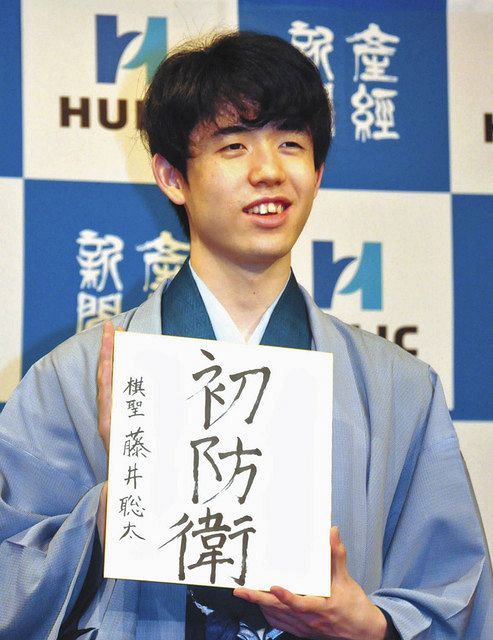 HU
産經
新聞
産
新聞
LIC
初防衛
棋聖 藤井聡太